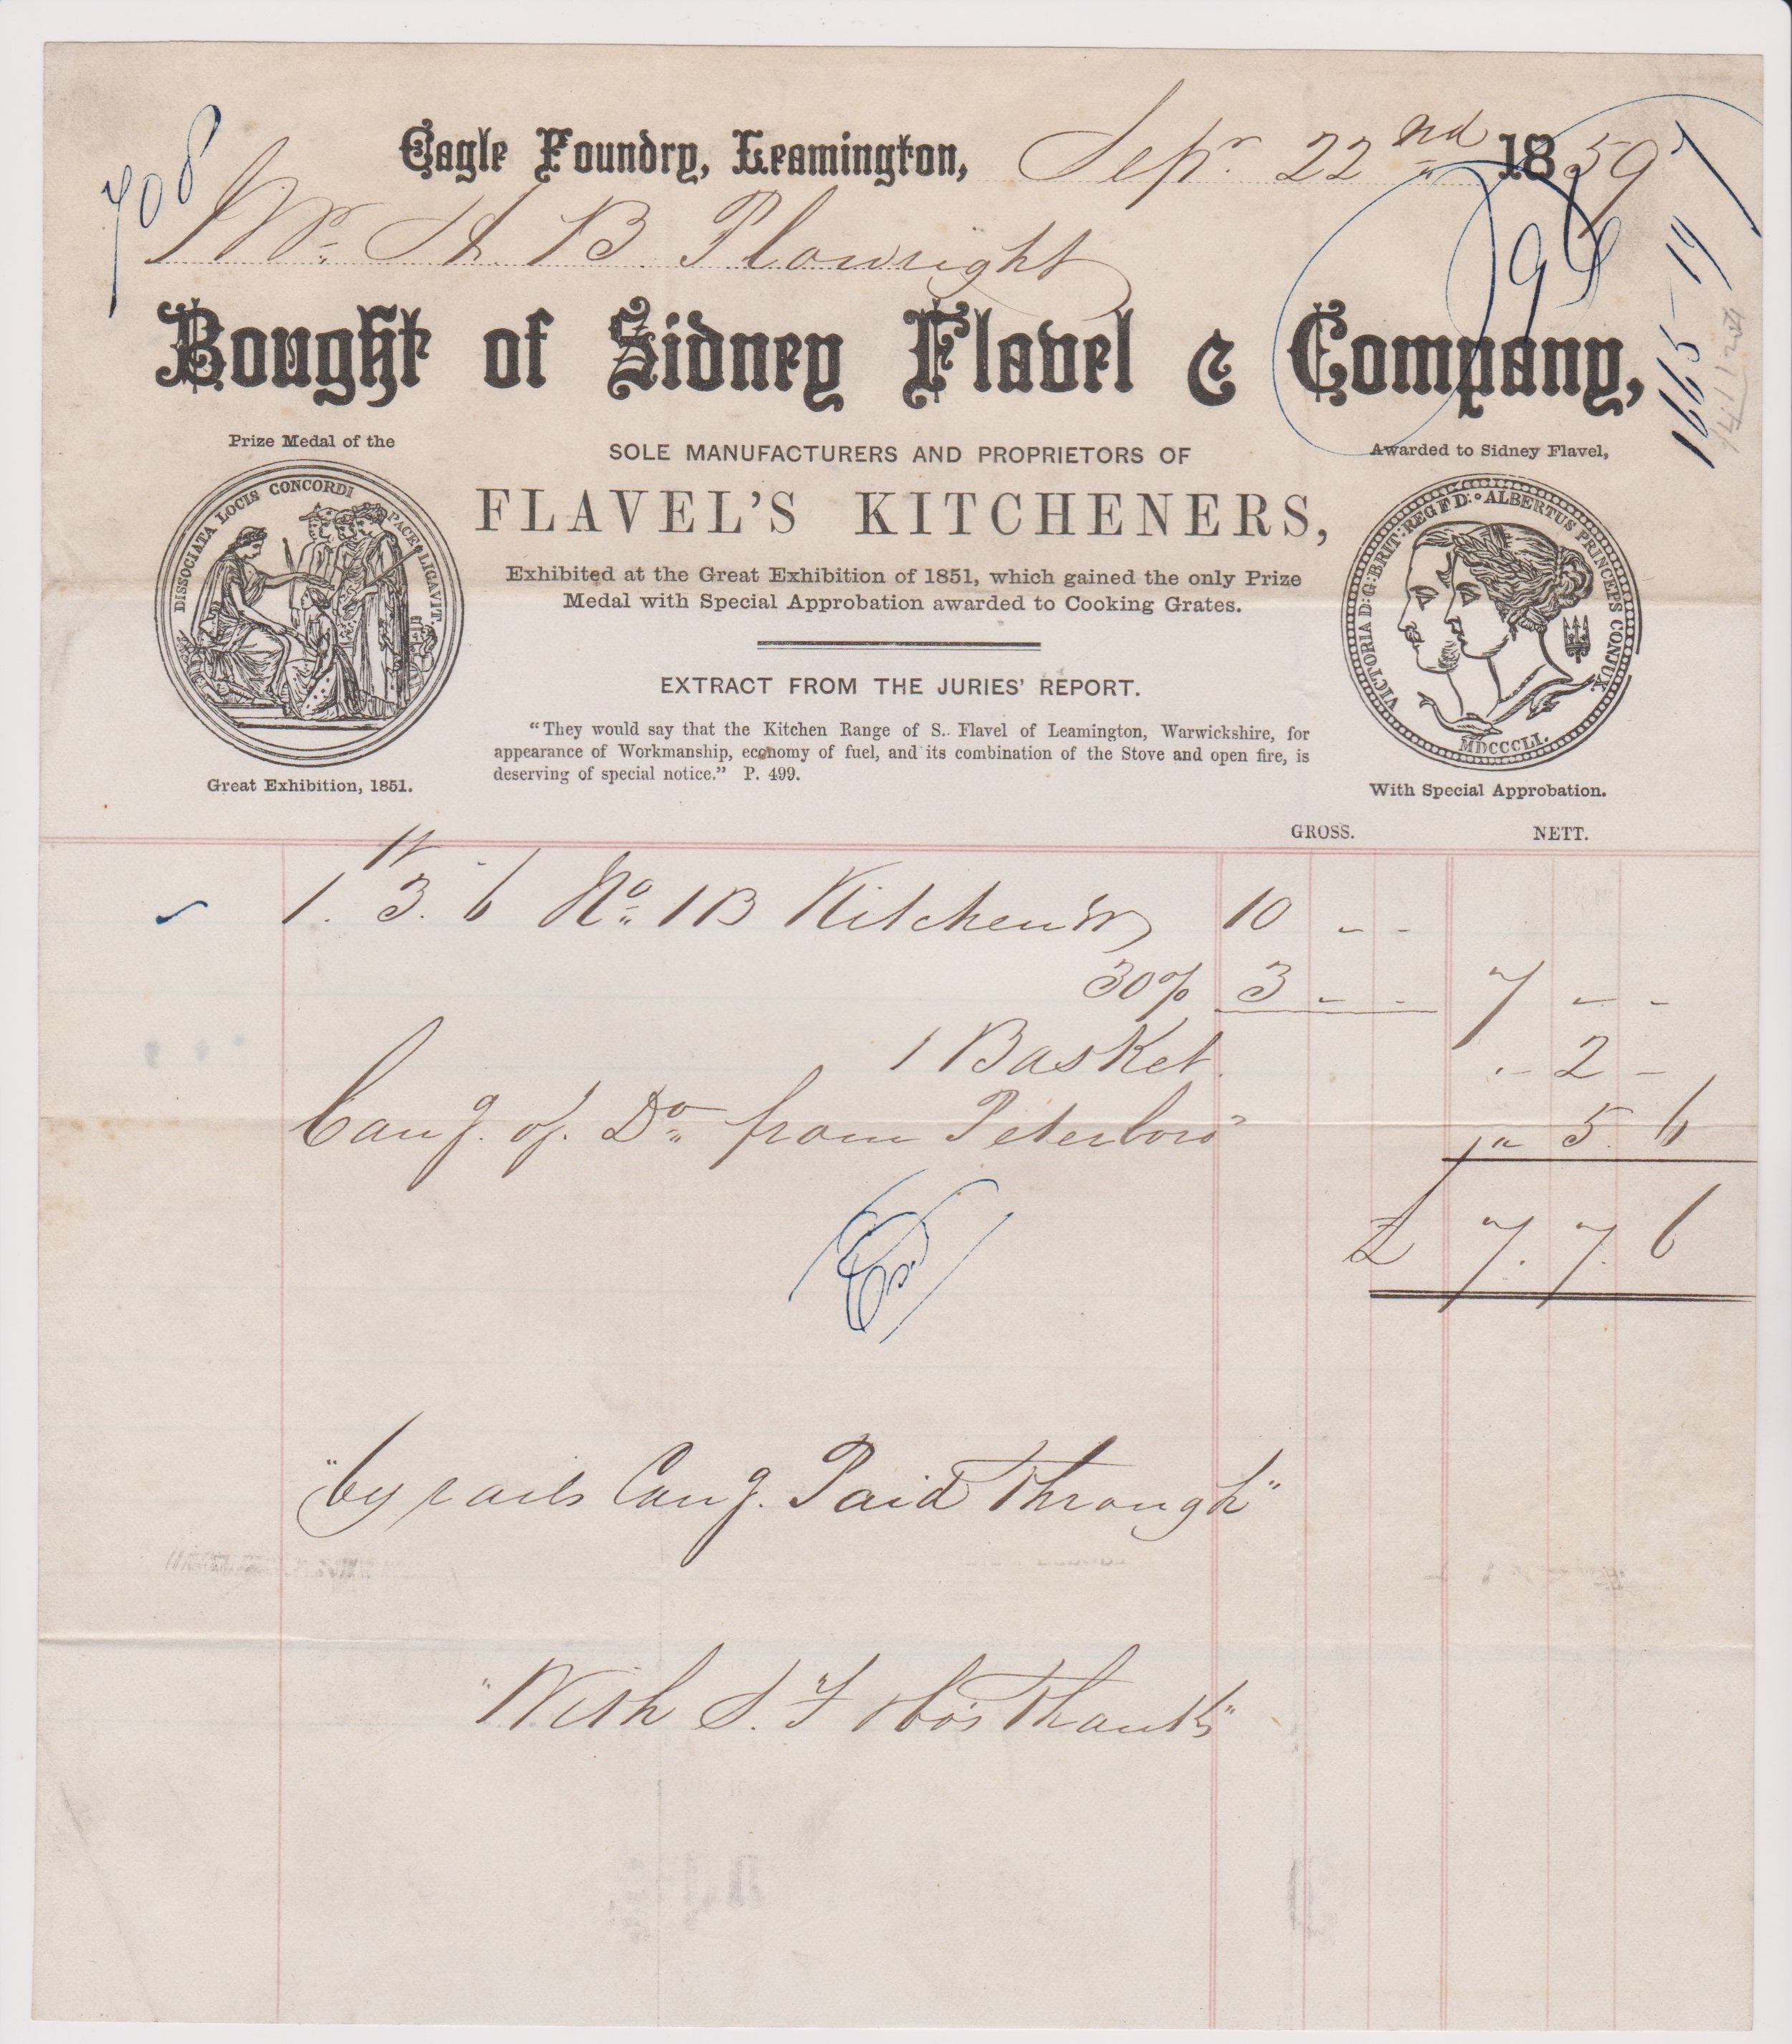 708
Eagle Foundry, Leamington, Sepr. 22nd 1859
Mr. H. B. Plowright
Bought of Sidney Flavel & Company,
1665-19
Prize Medal of the
DISSOCIATA LOCIS CONCORDI PACE LIGAVIT.
Great Exhibition, 1851.
SOLE MANUFACTURERS AND PROPRIETORS OF
FLAVEL'S KITCHENERS,
Exhibited at the Great Exhibition of 1851, which gained the only Prize
Medal with Special Approbation awarded to Cooking Grates.
EXTRACT FROM THE JURIES' REPORT.
"They would say that the Kitchen Range of S. Flavel of Leamington, Warwickshire, for
appearance of Workmanship, economy of fuel, and its combination of the Stove and open fire, is
deserving of special notice." P. 499.
Awarded to Sidney Flavel,
VICTORIA D:G:BRIT:REG:F:D: ALBERTUS PRINCEPS CONJUX.
MDCCCLI.
With Special Approbation.
GROSS. NETT.
1. 3. 6 No. 1B Kitchener 10 - -
30% 3 - - 7 - -
1 Basket. - 2 -
Carrg. of Do. from Peterboro' " 5. 6
£ 7. 7. 6
"by rails Carrg. Paid Through"
"With S. F & Co's Thanks"